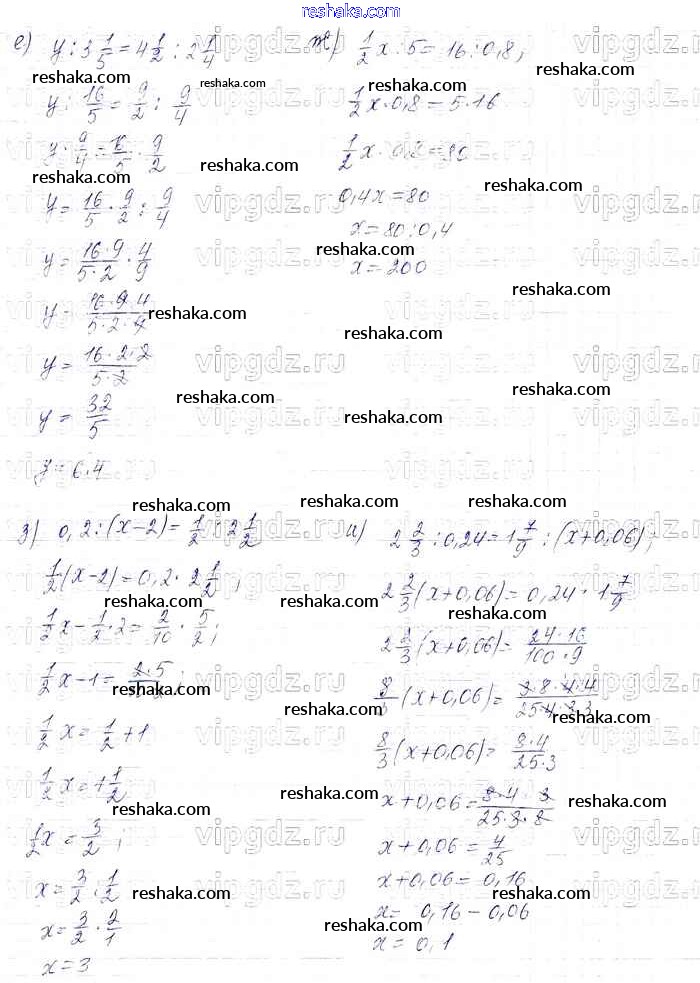 reshaka.com
е) y : 3 1/5 = 4 1/2 : 2 1/4
y : 16/5 = 9/2 : 9/4
y · 9/4 = 16/5 · 9/2
y = 16/5 · 9/2 : 9/4
y = 16·9/5·2 · 4/9
y = 16·9·4/5·2·9
y = 16·2·2/5·2
y = 32/5
y = 6.4
ж) 1/2 x : 5 = 16 : 0,8;
1/2 x · 0,8 = 5·16
1/2 x · 0,8 = 80
0,4x = 80
x = 80 : 0,4
x = 200
з) 0,2 : (x-2) = 1/2 : 2 1/2
1/2 (x-2) = 0,2 · 2 1/2;
1/2 x - 1/2 · 2 = 2/10 · 5/2;
1/2 x - 1 = 2·5
1/2 x = 1/2 + 1
1/2 x = +1/2
1/2 x = 3/2;
x = 3/2 : 1/2
x = 3/2 · 2/1
x = 3
и) 2 2/3 : 0,24 = 1 7/9 : (x+0,06);
2 2/3 (x+0,06) = 0,24 · 1 7/9
2 2/3 (x+0,06) = 24·16/100·9
8/3 (x+0,06) = 3·8·4·4/25·4·3·3
8/3 (x+0,06) = 8·4/25·3
x+0,06 = 8·4·3/25·3·8
x+0,06 = 4/25
x+0,06 = 0,16
x = 0,16 - 0,06
x = 0,1
vipgdz.ru
reshaka.com